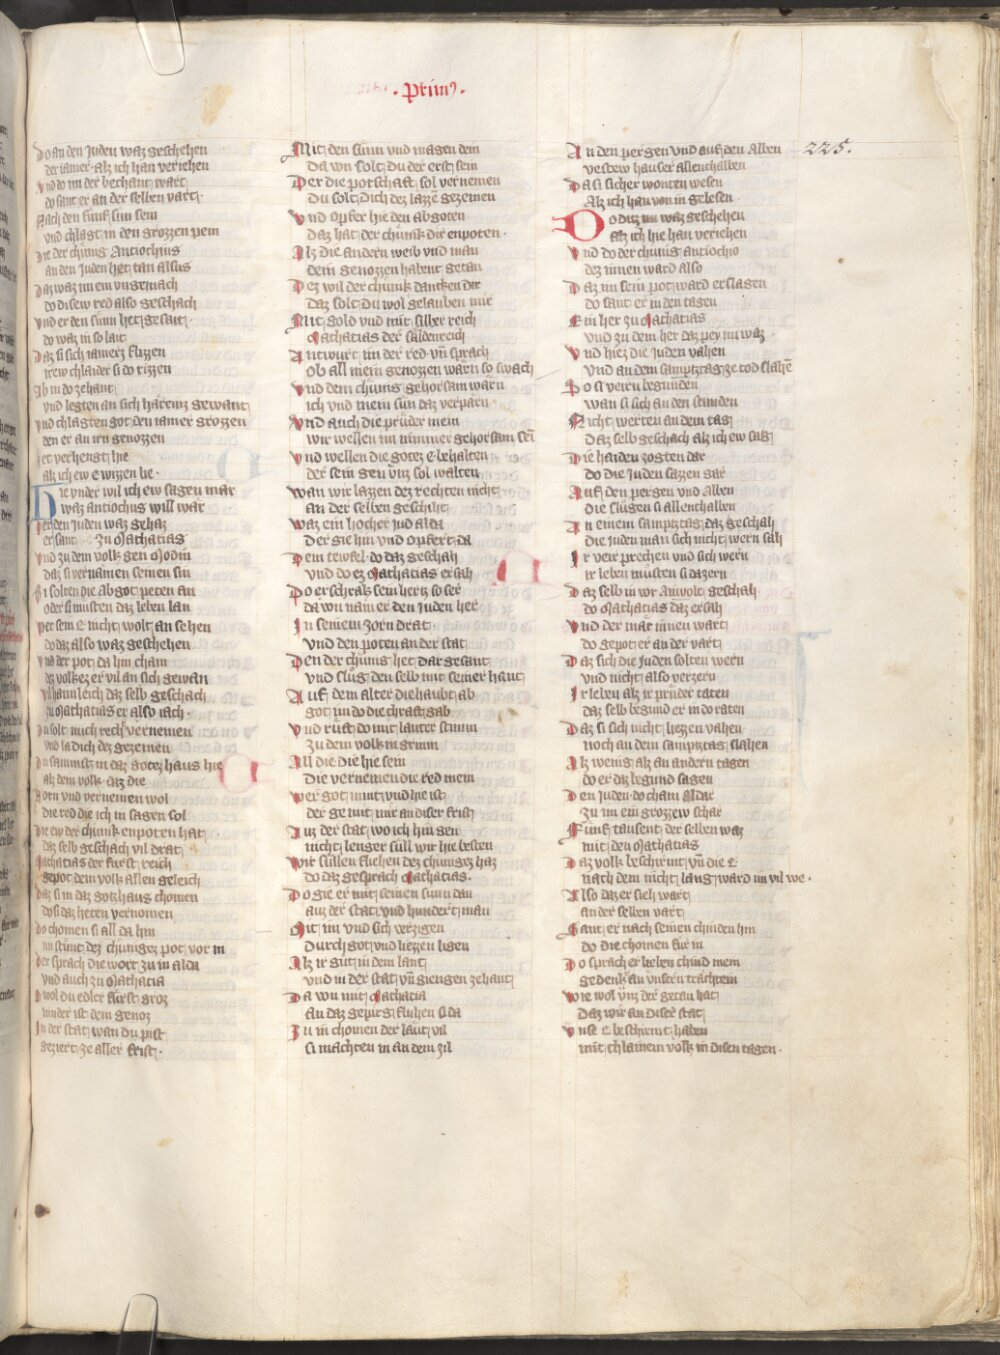 . Primꝰ.
225.
Do an den Juden waz geschehen
der iamer · alz ich han veriehen
Vnd do im der bechant wart
do sant er an der selben vart ·
Nach den sunf sun sein
vnd chlagt in den grozzen pein
Die der chunig Antiochius
an den Juden het tan alsus
Daz waz im ein vngemach
do disew red also geschach
Vnd er den sunn het gesait ·
do waz in so lait
Daz si sich iamerz flizzen
irew chlaider si do rizzen
Ab in do zehant
vnd legten an sich häreinz gewant
Vnd chlagten got den iamer grozzen
den er an irn genozzen
Het verhengt hie
alz ich ew e wizzen lie ·
Hie vnder wil ich ew sagen mär
waz antiochus will wär
Der den Juden waz gehaz
er sant zu Mathatias
Vnd zu dem volk gen Modin
daz si vernamen seinen sin
Si solten die abgot peten an
oder si musten daz leben lan
Der sein e nicht wolt an sehen
do daz also waz geschehen
Vnd der pot da hin cham
dez volkez er vil an sich gewan
Haimleich daz selb geschach
zu Mathatias er also iach ·
Du solt mich recht vernemen
vnd la dich dez gezemen
Du sammst in daz gotez haus hie
alz dem volk daz die
Horn vnd vernemen wol
Die red die ich in sagen sol
Die ew der chunk enpoten hat
daz selb geschach vil drat
Mathatias der furst reich
gepot dem volk allen geleich
Daz si in daz gotzhaus chomen
do si daz heten vernomen
Do chomen si all da hin
nu stunt dez chunigez pot vor in
Der sprach die wort zu in alda
vnd auch zu Mathatia
Wol du edler fürst groz
ninder ist dein genoz
In der stat wan du pist
geziert ze aller frist ·
Mit den sunn vnd magen dein
da von solt du der erst sein
Der die potschaft sol vernemen
du solt dich dez lazze gezemen
Vnd opfer hie den abgoten
daz hat der chunik dir enpoten ·
Alz die andern weib vnd man
dein genozzen habent getan
Dez wil der chunk dancken dir
daz solt du wol gelauben mir
Mit gold vnd mit silber reich
Mathatias der säldenreich
Antwurt im der red vn̄ sprach
ob all mein genozzen warn so swach
Vnd dem chunig gehorsam wärn
ich vnd mein sun daz verparn
Vnd auch die prüder mein
wir wellen im nimmer gehorsam sei
Vnd wellen die gotez e behalten
der sein gen vnz sol walten
Wan wir lazzen dez rechten nicht
an der selben geschiht
Waz ein hocher jud alda
der gie hin vnd opfert da
Dem tewfel · do daz geschah
vnd do ez Mathatias ersah
Do erschrak sein hertz so ser
da von nam er den Juden her
In seinem zorn drat
vnd den poten an der stat
Den der chunig het dar gesant
vnd slug den selb mit seiner hant
Auf dem alter die haubt ab
got im do die chraft gab
Vnd ruft do mit lauter stimm
zu dem volk in grimm
All die die hie sein
die vernemen die red mein
Wer got mint vnd hie ist
der ge mit mir an diser frist
Auz der stat wo ich hin gen
nicht lenger süll wir hie besten
Wir süllen fliehen dez chunigz haz
do daz gesprach Mathatias.
Do gie er mit seinen sunn dan
auz der stat vnd hundert man
Mit im vnd sich verzigen
durch got vnd liezzen ligen
Alz ir gut in dem lant
vnd in der stat vn̄ giengen zehant
Da von mit Mathatia
an daz gepirg fluhen si da
Zu in chomen der läut vil
si machten in an dem zil
An den pergen vnd auf den Alben
vestew häuser allenthalben
Da si sicher wonten wesen
Alz ich han von in gelesen
Do ditz nu waz geschehen
alz ich hie han veriehen
Vnd do der chunig antiocho
dez innen ward also
Daz im sein pot ward erslagen
do sant er in den tagen
Ein her zu Mathatias
vnd zu dem her daz pey im waz
Vnd hiez die Juden vahen
vnd an dem samptztag ze tod slahē
Do si veirn begunden
wan si sich an den stunden
Nicht werten an dem tag
daz selb geschach alz ich ew sag
Die haiden zogten dar
do die Juden sazzen gar
Auf den pergen vnd Alben
die slugen si allenthalben
An einem samptztag daz geschah
die Juden man sich nicht wern sah
Ir veir prechen vnd sich wern
ir leben musten si da zern
Daz selb in vor Antvolt geschah
do Mathatias daz ersah
Vnd der mär innen wart
do gepot er an der vart
Daz sich die Juden solten wern
vnd nicht also verzern
Ir leben alz ir prüder täten
daz selb begund er in do raten
Daz si sich nicht liezzen vahen
noch an dem samptztag slahen
Alz wenig alz an andern tagen
do er daz begund sagen
Den Juden · do cham aldar
zu im ein grozzew schar
Fünf tausent der selben waz
mit den Mathatias
Daz volk beschirmt vn̄ die e
nach dem nicht lang ward im vil we ·
Also daz er siech wart
an der selben vart
Sant er nach seinen chinden hin
do die chomen für in
Do sprach er lieben chind mein
gedenkt an vnsern trächtein
Wie wol vnz der getan hat
daz wir an diser stat
Vnse e beschirmt haben
mit chlainem volk in disen tagen ·